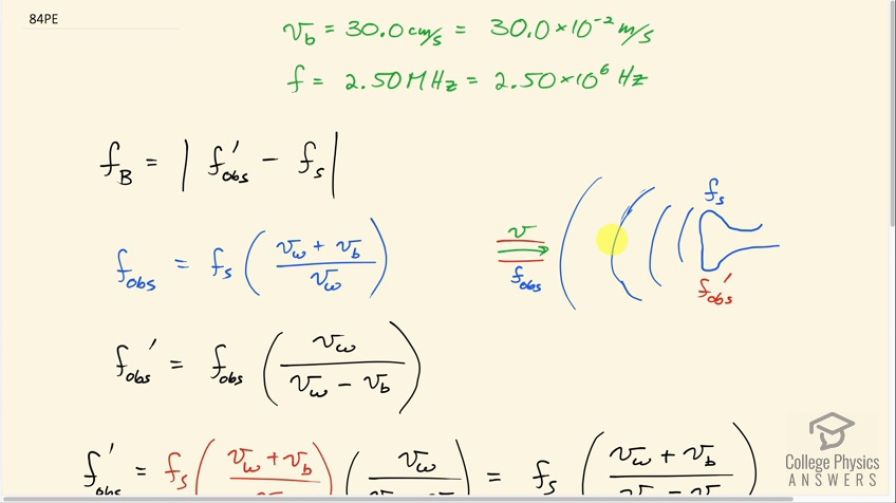 84PE
v_b = 30.0 cm/s = 30.0 × 10⁻² m/s
f = 2.50 MHz = 2.50 × 10⁶ Hz
f_B = | f_obs' − f_s |
f_obs = f_s ( (v_w + v_b) / v_w )
v
f_obs
f_s
f_obs'
f_obs' = f_obs ( v_w / (v_w − v_b) )
f_obs' = f_s ( v_w + v_b ) ( v_w ) = f_s ( v_w + v_b )
College Physics
ANSWERS